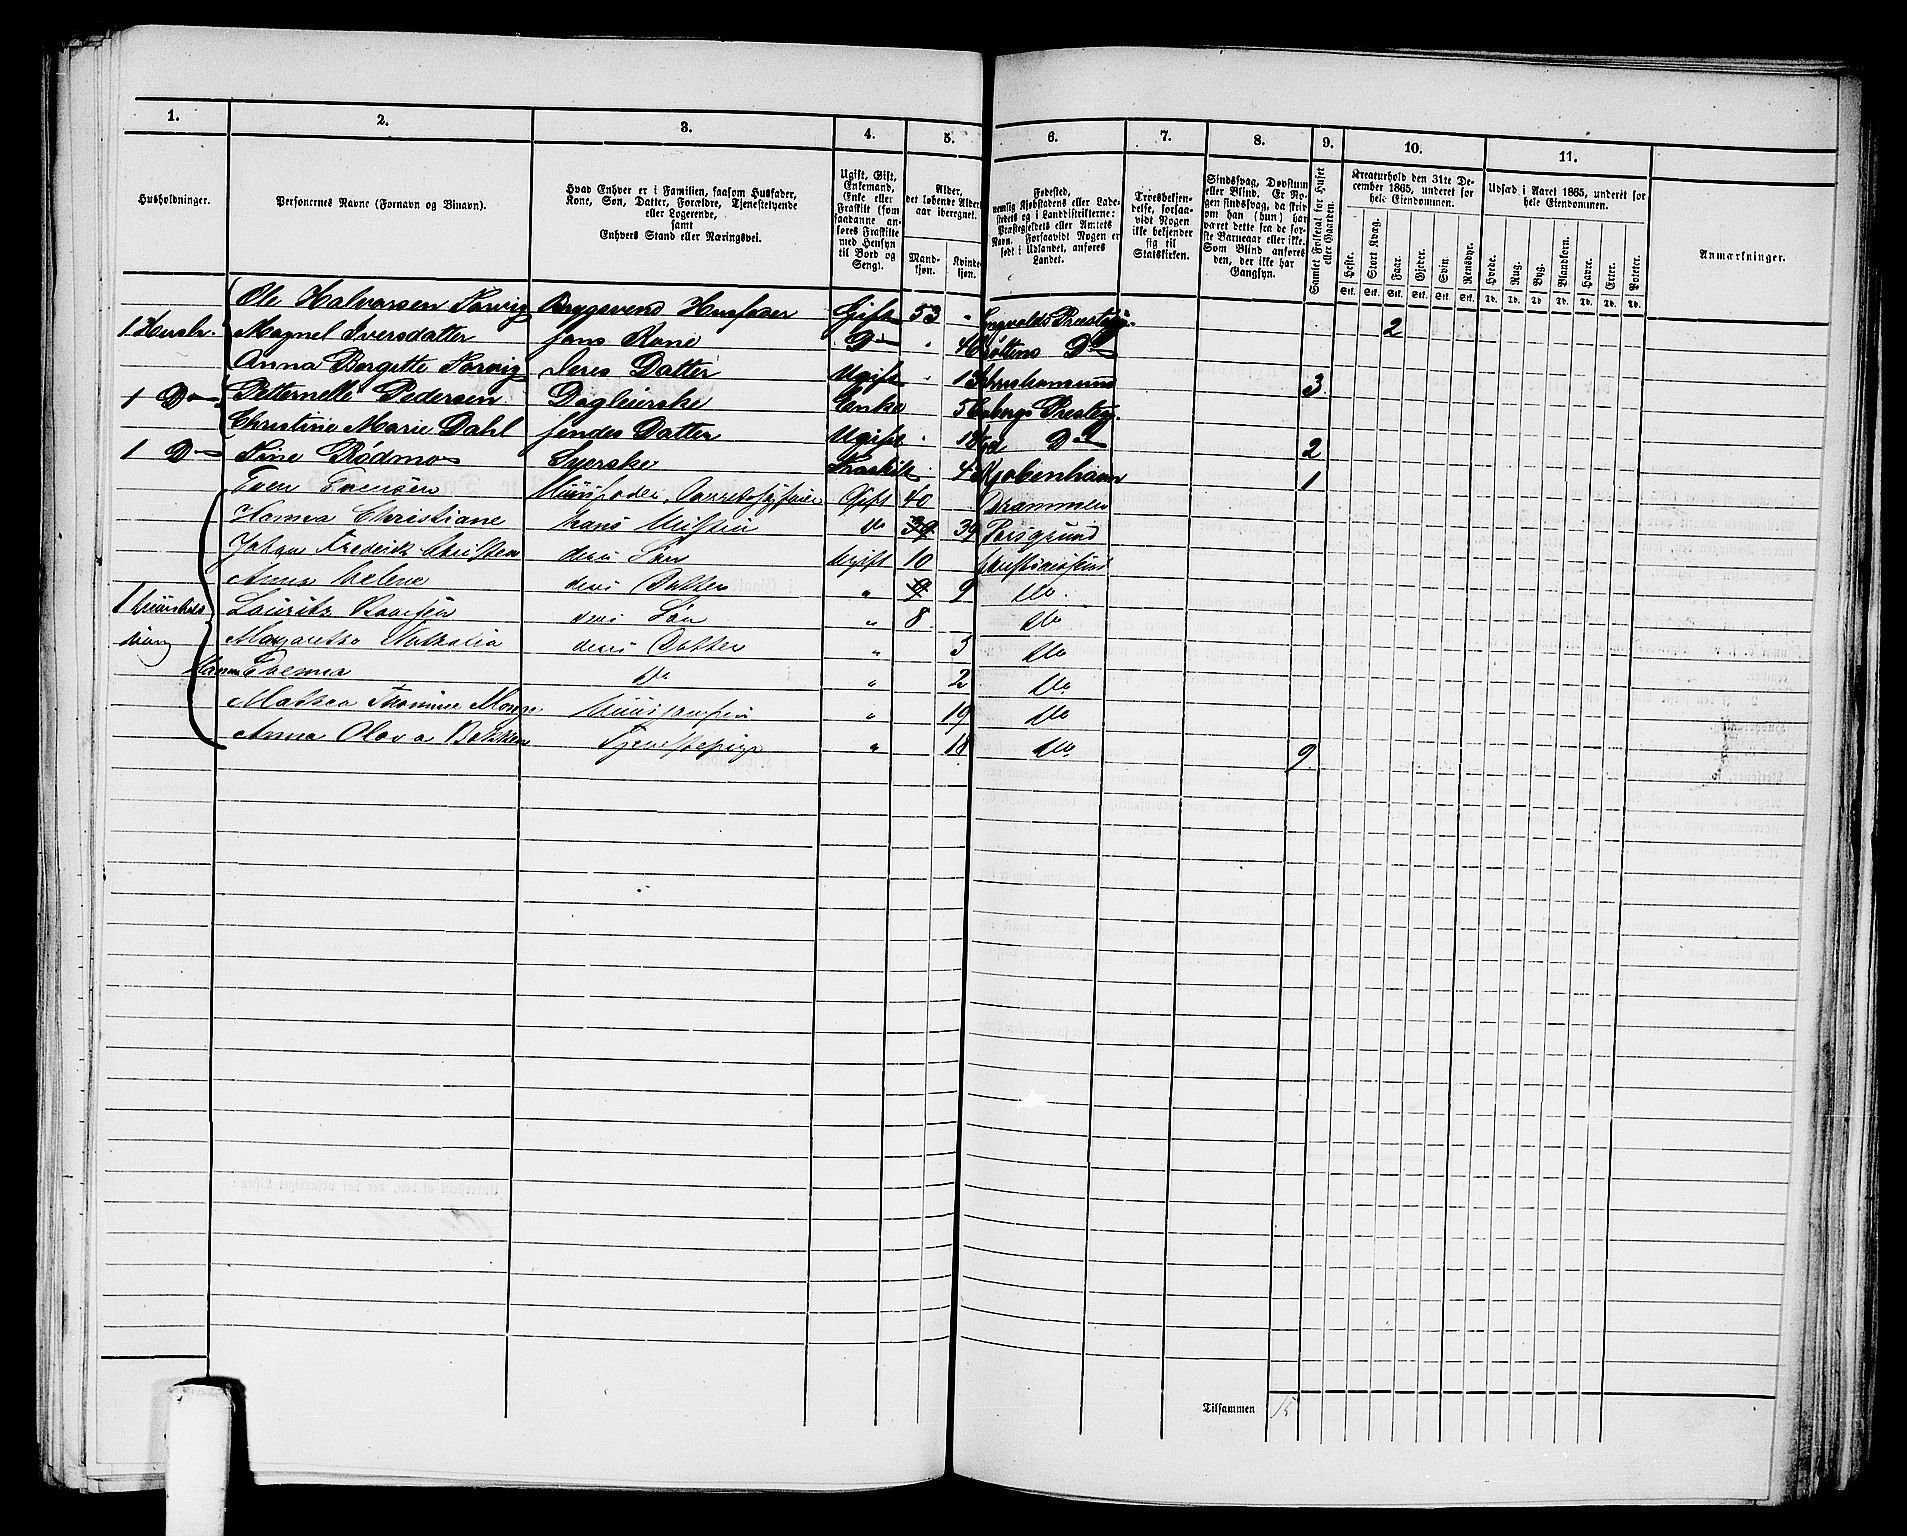 1. 2. 3. 4. 5. 6. 7. 8. 9. 10. 11.
Husholdninger.
Personernes Navne (Fornavn og Binavn).
Hvad Enhver er i Familien, saasom Husfader,
Kone, Søn, Datter, Forældre, Tjenestetyende
eller Logerende,
samt
Enhvers Stand eller Næringsvei.
Ugift, Gift,
Enkemand,
Enke eller
Fraskilt (som
saadanne an-
føres Fraskilte
med Hensyn
til Bord og
Seng).
Alder,
det løbende Alders-
aar iberegnet.
Mand-
kjøn.
Kvinde-
kjøn.
Fødested,
nemlig Kjøbstadens eller Lade-
stedets og i Landdistrikterne:
Præstegjeldets eller Amtets
Navn. Forsaavidt Nogen er
født i Udlandet, anføres
Landet.
Troesbekjen-
delse, forsaa-
vidt Nogen
ikke bekjender
sig til
Statskirken.
Sindssvag, Døvstum
eller Blind. Er No-
gen sindssvag, da skriv
om han (hun) har
været dette fra de før-
ste Barneaar eller ikke.
Som Blind anføres
den, der ikke har
Gangsyn.
Samlet Folketal for Huset
eller Gaarden.
Kreaturhold den 31te De-
cember 1865, underet for
hele Eiendommen.
Heste. Stort Kvæg. Faar. Gjeder. Svin. Rensdyr.
Stk. Stk. Stk. Stk. Stk. Stk.
Udsæd i Aaret 1865, underet for
hele Eiendommen.
Hvede. Rug. Byg. Blandkorn. Havre. Erter. Poteter.
Td. Td. Td. Td. Td. Td. Td.
Anmærkninger.
Ole Halvorsen Norvig Brygsvend Husfader Gift 53
1 Hush. Magnel Iversdatter hans Kone Do 2
Anna Borgette Norvig deres Datter Ugift 3
1 Do Petternelle Pedersen Enke
Christine Marie Dahl hendes Datter Ugift Do 2
1 Do Sine Rødmo Syerske Fraskilt Kjøbenhavn 1
Even Evensen Huusfader Gift 40 Drammen
Hanna Christiane hans Do 39 39 Porsgrund
Johan Frederik Christian deres Søn Ugift 10
Anna Helene deres Datter " 9 9 Do
1 Lauritz deres Søn " 8 Do
Margarethe Nathalia deres Datter " 3 Do
Hanna Evenna Do " 2 Do
Mathea Thomine " 19 Do
Anna Olava Bakken Tjenestepige " 18 Do 9
Tilsammen 15